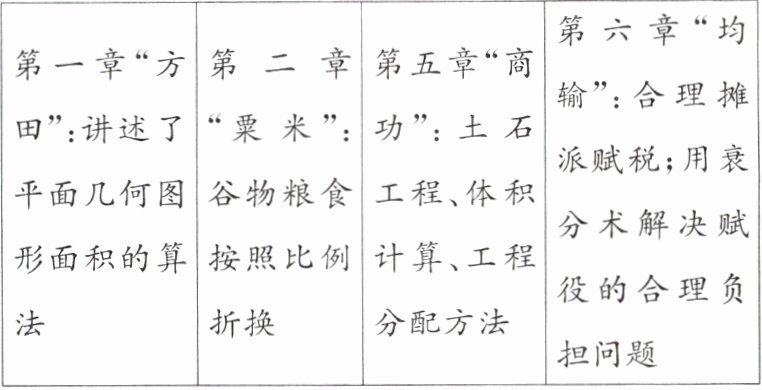 第一章“方
田”:讲述了
平面几何图
形面积的算
法
第二章
“粟米”:
谷物粮食
按照比例
折换
第五章“商
功”:土石
工程、体积
计算、工程
分配方法
第六章“均
输”:合理摊
派赋税;用衰
分术解决赋
役的合理负
担问题